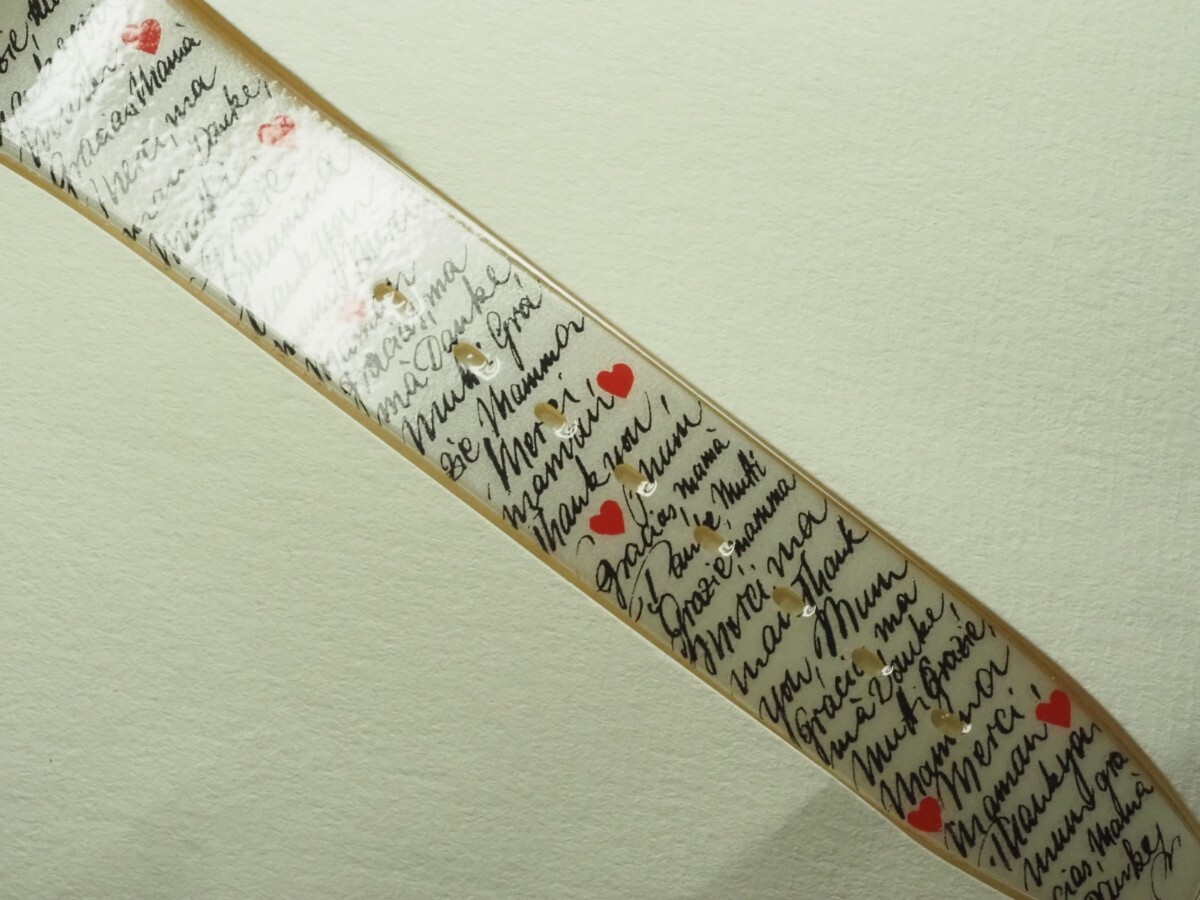 Gracias, Mamà
Merci, ma
man Danke,
Mutti
Grazie
Mamma
Thank you
Mum, Merci
Maman
Gracias, ma
mà Danke,
Mutti Gra
zie Mamma
Merci,
maman,
Thank you,
mum,
Gracias, mamà
Danke, Mutti
Grazie, mamma
Merci, ma
man Thank
you, Mum
Gracias ma
mà Danke,
Mutti Grazie,
Mamma
Merci,
maman,
Thank you
mum gra
cias, Mamà
Danke,